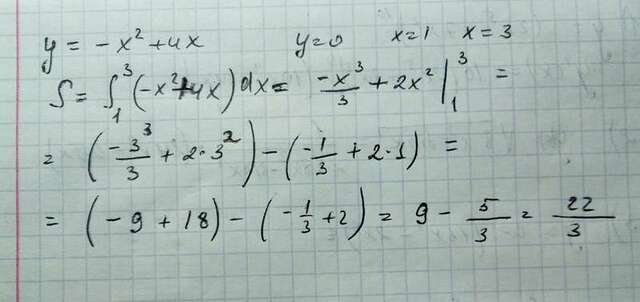 y = -x² + 4x y=0 x=1 x=3
S = ∫₁³ (-x²+4x) dx = -x³/3 + 2x² |₁³ =
= (-3³/3 + 2·3²) - (-1/3 + 2·1) =
= (-9 + 18) - (-1/3 + 2) = 9 - 5/3 = 22/3